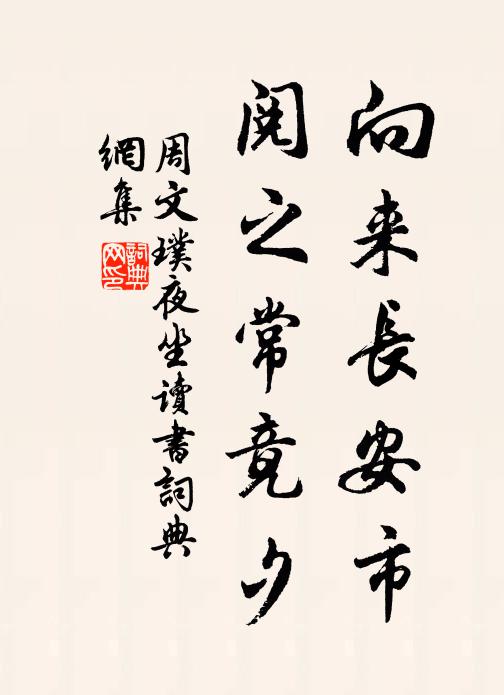 向来長安市
閱之常竟夕
周文璞夜坐讀書詞典
網集
詞典
网印